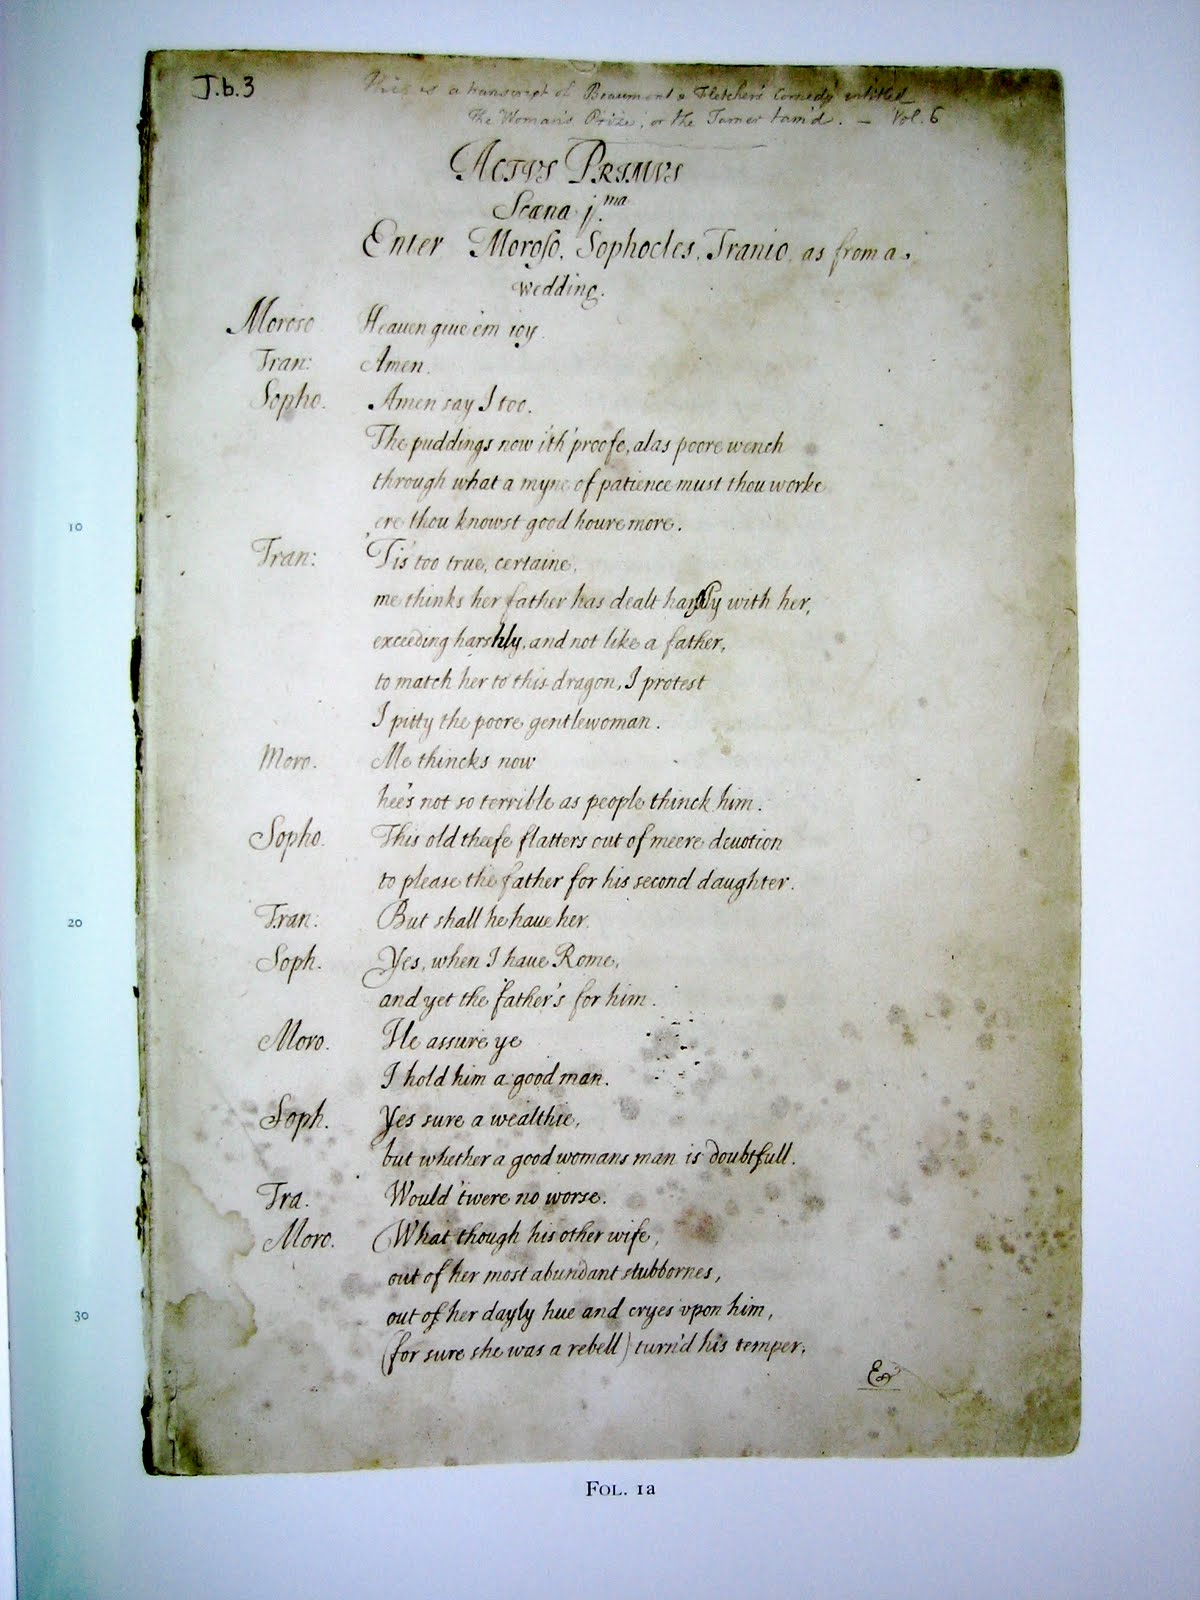 J.b.3
This is a transcript of Beaumont & Fletcher's Comedy intitled
The Woman's Prize, or the Tamer tam'd. — Vol. 6
Actvs Primvs
Scæna j.ma
Enter Moroso. Sophocles. Tranio, as from a
wedding.
Moroso Heauen giue 'em ioy
Tran: Amen.
Sopho. Amen say I too.
The puddings now ith' proofe, alas poore wench
through what a myne of patience must thou worke
10 ere thou knowst good houre more.
Tran: 'Tis too true, certaine,
me thinks her father has dealt harshly with her,
exceeding harshly, and not like a father,
to match her to this dragon, I protest
I pitty the poore gentlewoman.
Moro. Me thincks now
hee's not so terrible as people thinck him.
Sopho. This old theefe flatters out of meere deuotion
to please the father for his second daughter.
20 Tran: But shall he haue her.
Soph. Yes, when I haue Rome,
and yet the father's for him.
Moro. Ile assure ye
I hold him a good man.
Soph. Yes sure a wealthie,
but whether a good womans man is doubtfull.
Tra. Would 'twere no worse.
Moro. What though his other wife,
out of her most abundant stubbornes,
30 out of her dayly hue and cryes vpon him,
(for sure she was a rebell) turn'd his temper,
Fol. 1a